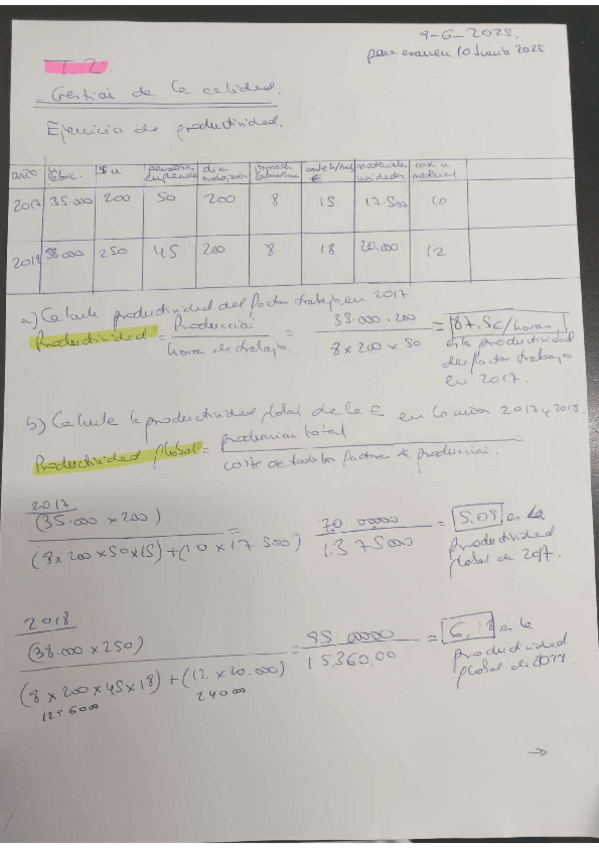 9-6-2025.
para examen 10 Junio 2025
T.2.
Gestión de la calidad.
Ejercicio de productividad.
año fabric. $ u personas empleadas días trabajados coste h/ € materiales unidades cost u material
2017 35.000 200 50 200 8 15 17.500 10
2018 38.000 250 45 200 8 18 20.000 12
a) Calcule productividad del factor trabajo en 2017.
Productividad = Producción / horas de trabajo = 35.000 · 200 / 8 x 200 x 50 = 87.5€/horas
es la productividad
del factor trabajo
en 2017.
b) Calcule la productividad global de la E en los años 2017 y 2018.
Productividad global = producción total / coste de todos los factores de producción. =
2017
(35.000 x 200) / (8 x 200 x 50 x 15) + (10 x 17.500) = 70 00000 / 1.375000 = 5.09 es la
productividad
global de 2017.
2018
(38.000 x 250) / (8 x 200 x 45 x 18) + (12 x 20.000) = 95 00000 / 15.360.00 = 6,18 es la
productividad
global de 2018.
240000
→